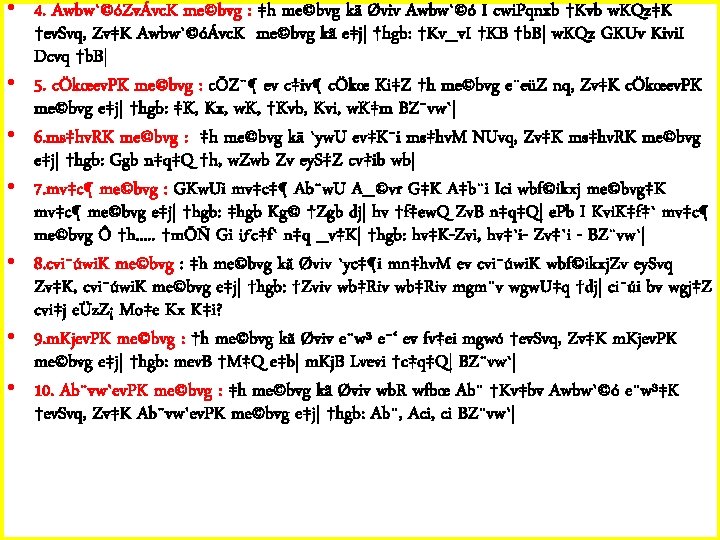 • 4. Awbw`©óZvÁvcK me©bvg : ‡h me©bvg kã Øviv Awbw`©ó I cwiPqnxb †Kvb wKQz‡K
†evSvq, Zv‡K Awbw`©óÁvcK me©bvg kã e‡j| †hgb: †Kv_vI †KB †bB| wKQz GKUv KiviI
Dcvq †bB|
• 5. cÖkœevPK me©bvg : cÖZ¨¶ ev c‡iv¶ cÖkœ Ki‡Z †h me©bvg e¨eüZ nq, Zv‡K cÖkœevPK
me©bvg e‡j| †hgb: ‡K, Kx, wK, †Kvb, Kvi, wK‡m BZ¨vw`|
• 6.ms‡hvRK me©bvg : ‡h me©bvg kã `ywU ev‡K¨i ms‡hvM NUvq, Zv‡K ms‡hvRK me©bvg
e‡j| †hgb: Ggb n‡q‡Q †h, wZwb Zv eyS‡Z cv‡ib wb|
• 7.mv‡c¶ me©bvg : GKwUi mv‡c‡¶ Ab¨wU A_©vr G‡K A‡b¨i Ici wbf©ikxj me©bvg‡K
mv‡c¶ me©bvg e‡j| †hgb: ‡hgb Kg© †Zgb dj| hv †f‡ewQ ZvB n‡q‡Q| ePb I KviK‡f‡` mv‡c¶
me©bvg Ô †h..... †mÕÑ Gi iƒc‡f` n‡q _v‡K| †hgb: hv‡K-Zvi, hv‡`i- Zv‡`i - BZ¨vw`|
• 8.cvi¯úwiK me©bvg : ‡h me©bvg kã Øviv `yc‡¶i mn‡hvM ev cvi¯úwiK wbf©ikxjZv eySvq
Zv‡K, cvi¯úwiK me©bvg e‡j| †hgb: †Zviv wb‡Riv wb‡Riv mgm¨v wgwU‡q †dj| ci¯úi bv wgj‡Z
cvi‡j eÜzZ¡ Mo‡e Kx K‡i?
• 9.mKjevPK me©bvg : †h me©bvg kã Øviv e¨w³ e¯‘ ev fv‡ei mgwó †evSvq, Zv‡K mKjevPK
me©bvg e‡j| †hgb: mevB †M‡Q e‡b| mKjB Lvevi †c‡q‡Q| BZ¨vw`|
• 10. Ab¨vw`evPK me©bvg : ‡h me©bvg kã Øviv wbR wfbœ Ab¨ †Kv‡bv Awbw`©ó e¨w³‡K
†evSvq, Zv‡K Ab¨vw`evPK me©bvg e‡j| †hgb: Ab¨, Aci, ci BZ¨vw`|